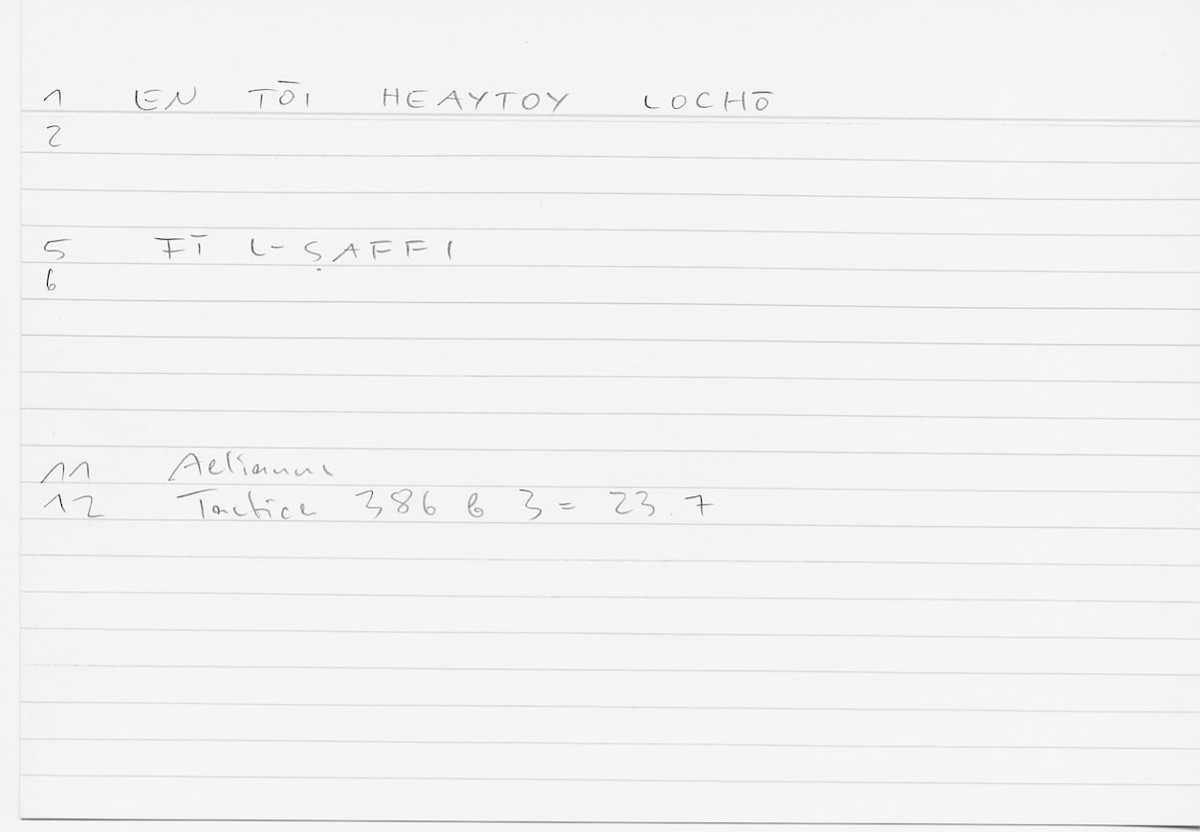 1 EN TŌI HEAYTOY LOCHŌ
2
5 FĪ L-ṢAFFI
6
11 Aelianus
12 Tactica 386 b 3 = 23.7